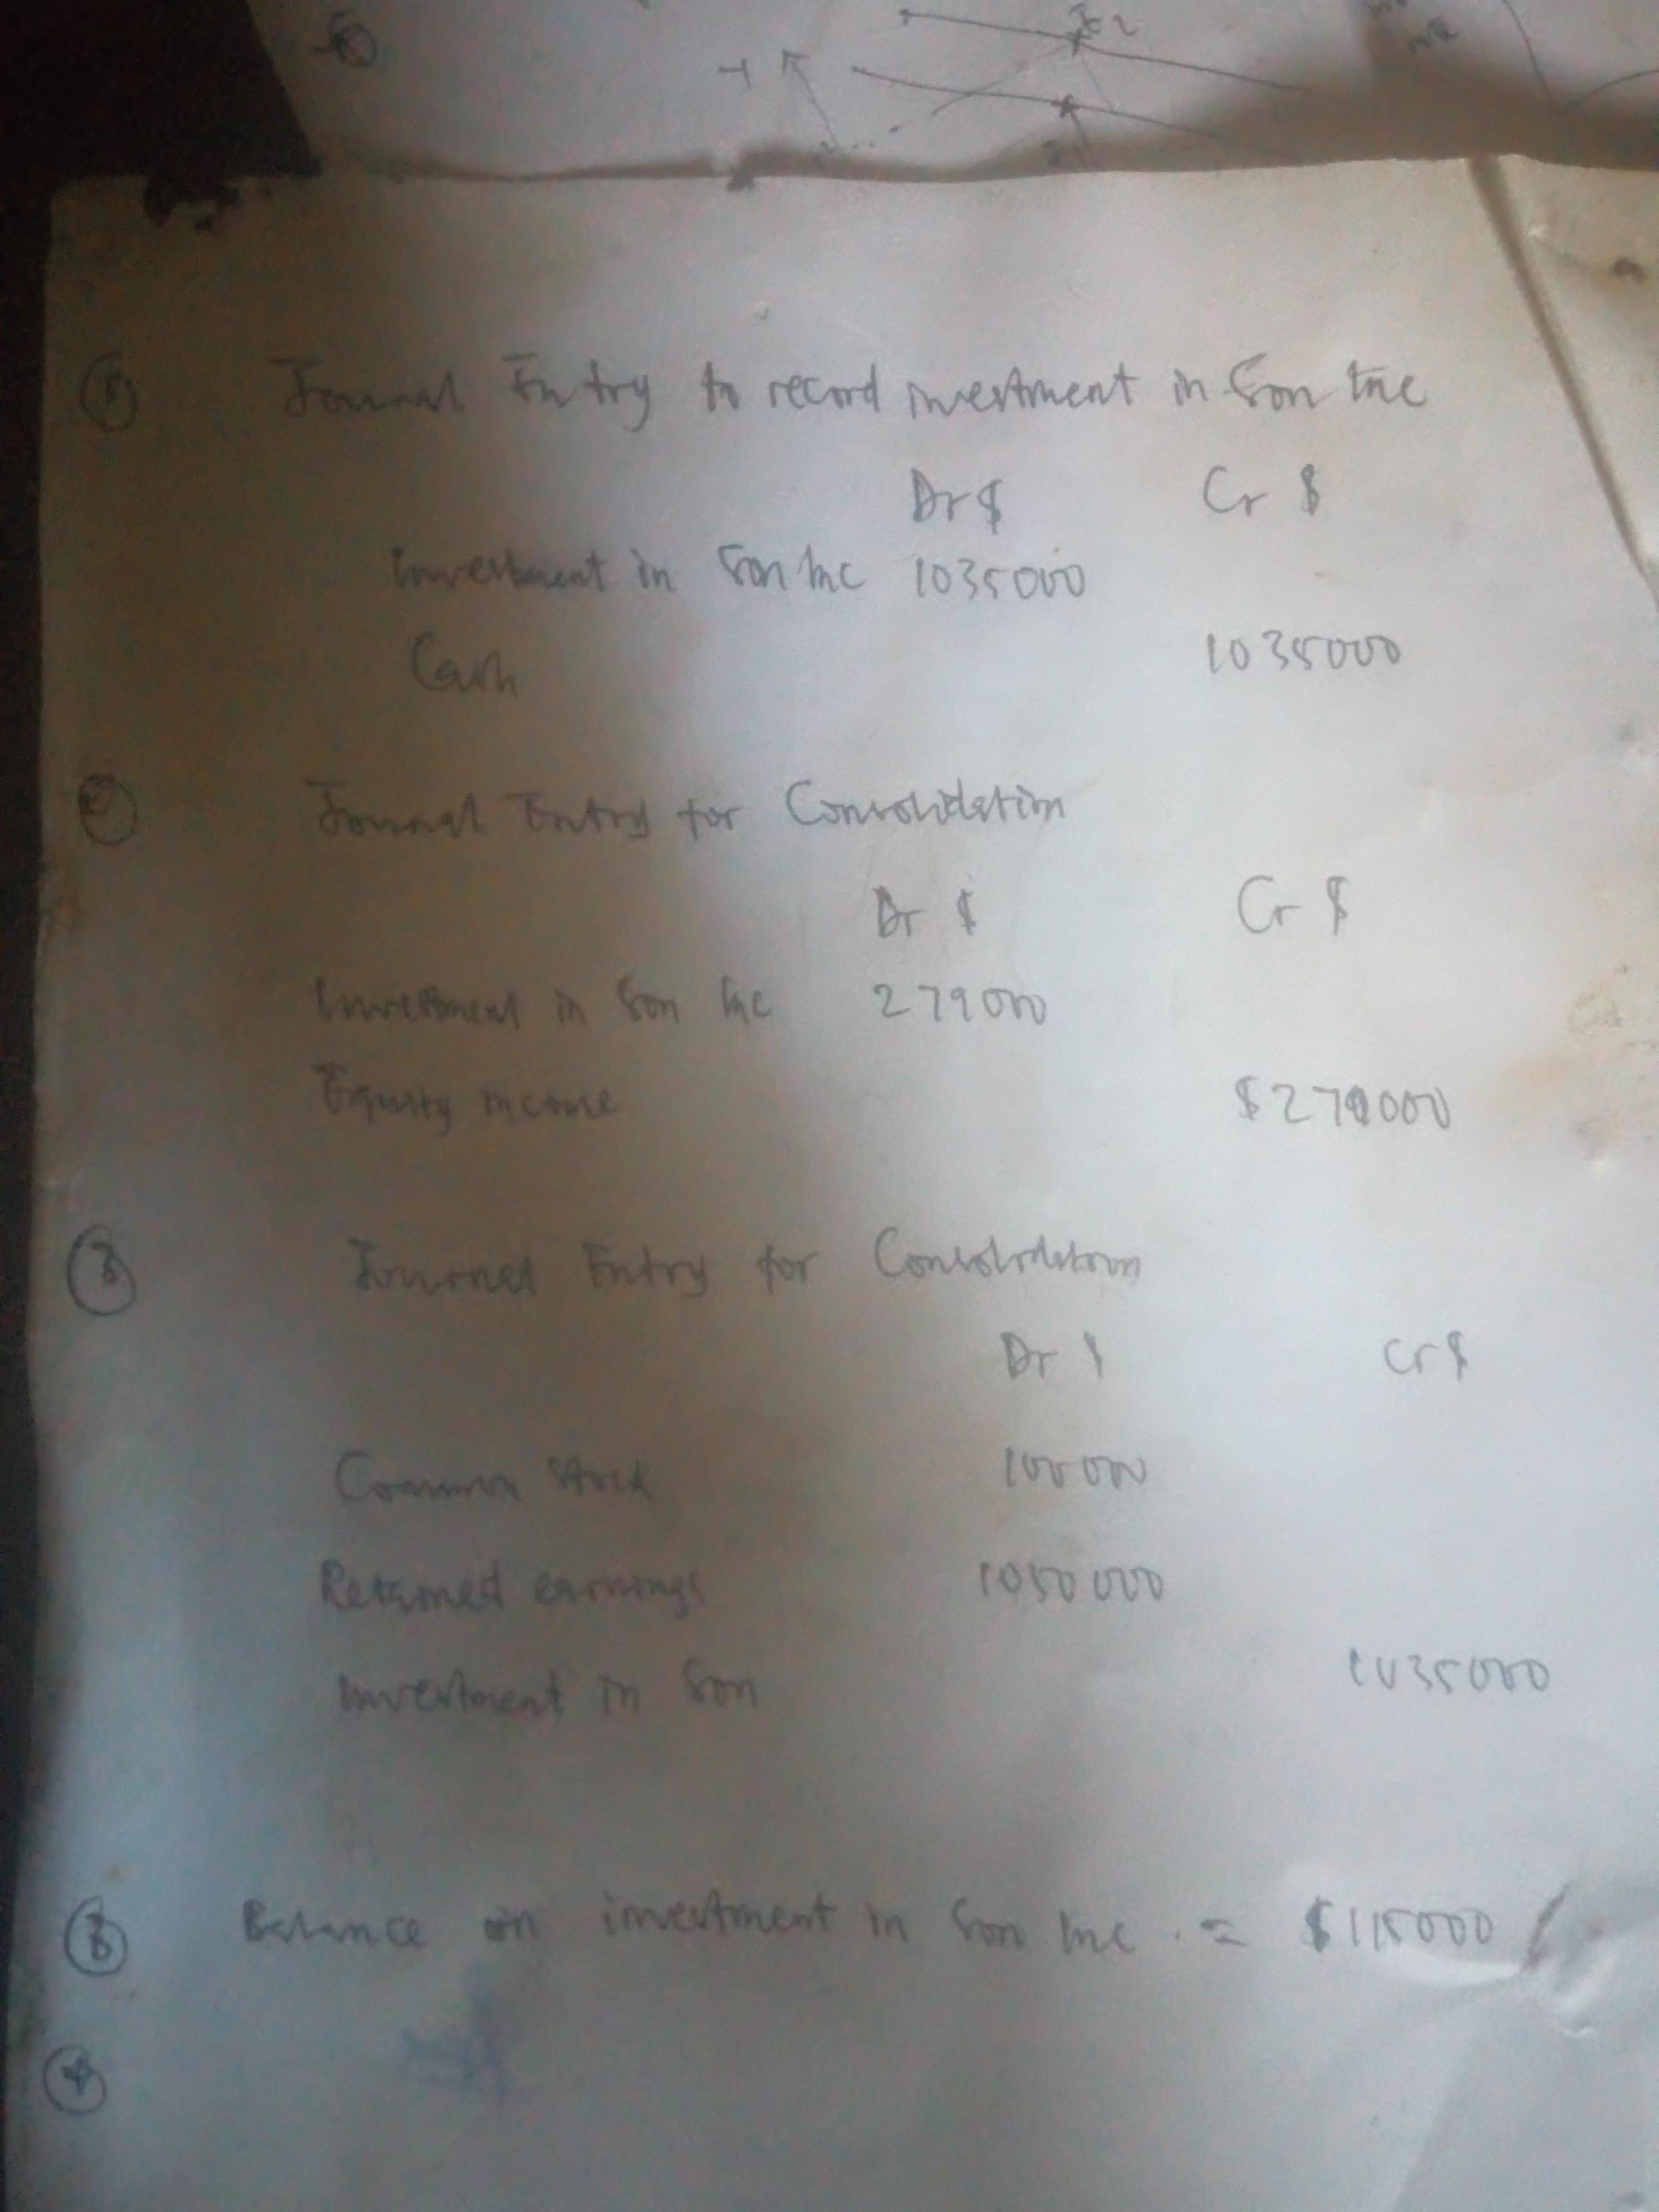 I2
① Journal Entry to record investment in Son Inc
Dr $ Cr $
Investment in Son Inc 1035000
Cash 1035000
② Journal Entry for Consolidation
Dr $ Cr $
Investment in Son Inc 279000
Equity income $279000
③ Journal Entry for Consolidation
Dr $ Cr $
Common Stock 100000
Retained earnings 1050000
Investment in Son 1035000
③ Balance on investment in Son Inc. = $115000
④